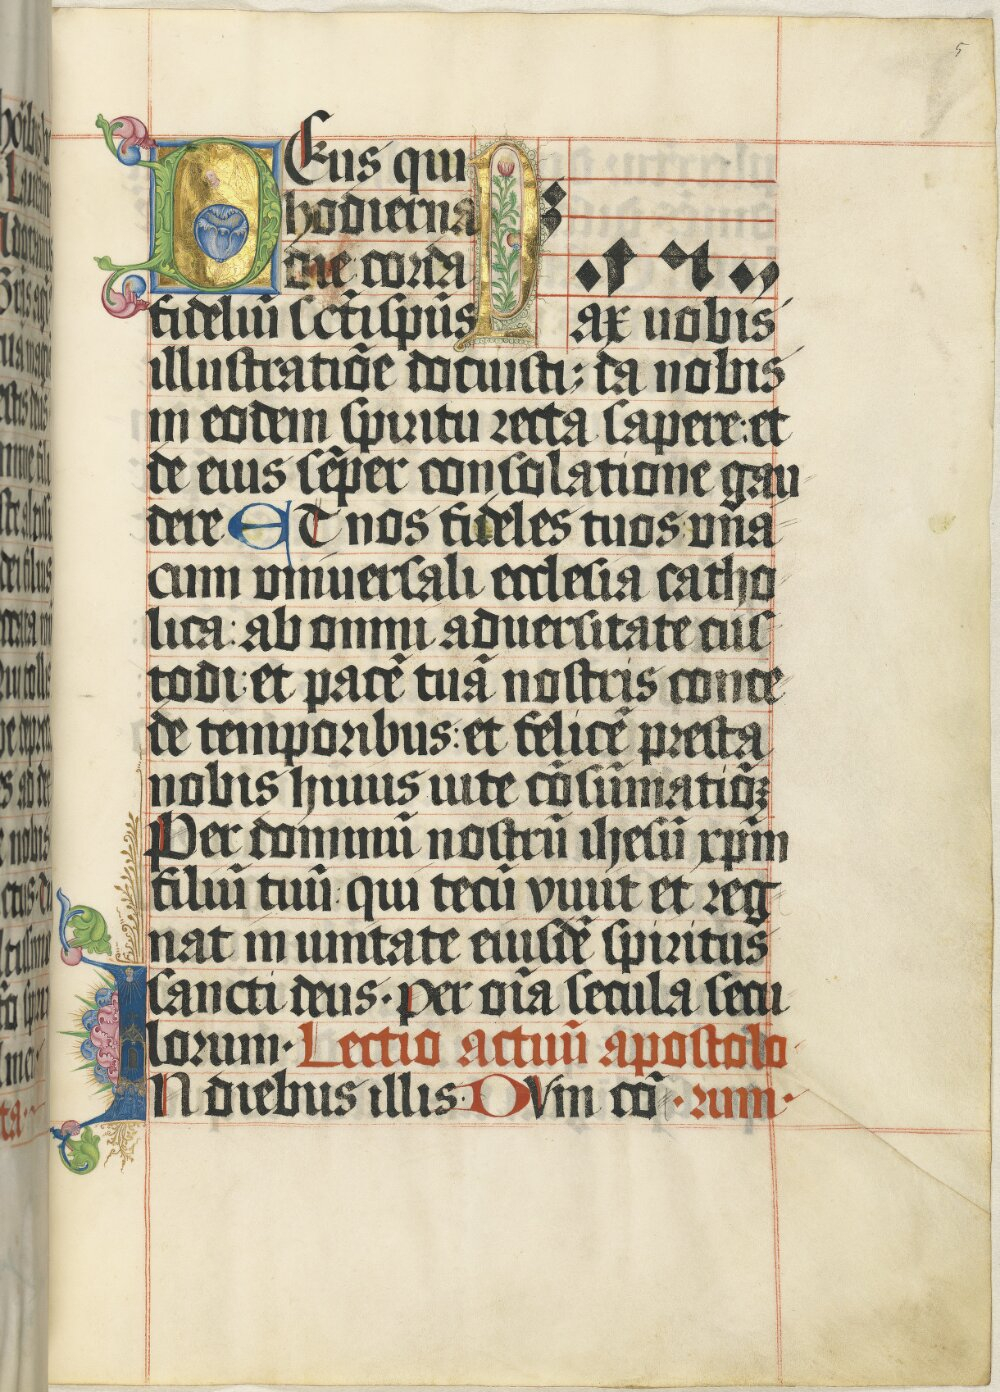 5
DEus qui
hodierna
die corda
fideliū sctī spūs Pax uobis
illustratiōe docuisti; da nobis
in eodem spiritu recta sapere: et
de eius sēper consolatione gau
dere ET nos fideles tuos vna
cum vniuersali ecclesia catho
lica: ab omni aduersitate cus
todi: et pacē tuā nostris conce
de temporibus: et felicē presta
nobis huius uite cōsūmatiōꝫ
Per dominū nostrū ihesū xp̄m
filiū tuū: qui tecū viuit et reg
nat in unitate eiusdē spiritus
sancti deus. per oīa secula secu
lorum. Lectio actuū apostolo
IN diebus illis. DVm cō .rum.